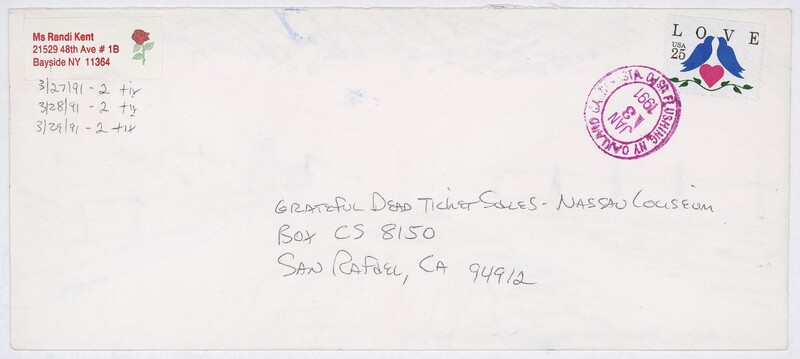 Ms Randi Kent
21529 48th Ave # 1B
Bayside NY 11364
3/27/91 - 2 tix
3/28/91 - 2 tix
3/29/91 - 2 tix
LOVE
USA
25
OAKLAND GARDENS STA. FLUSHING, NY
JAN
13
1991
GRATEFUL DEAD TICKET SALES - NASSAU COLISEUM
BOX CS 8150
SAN RAFAEL, CA 94912